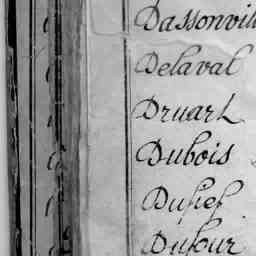 Dassonvill
Delaval
Druart
Dubois
Dufief
Dufour